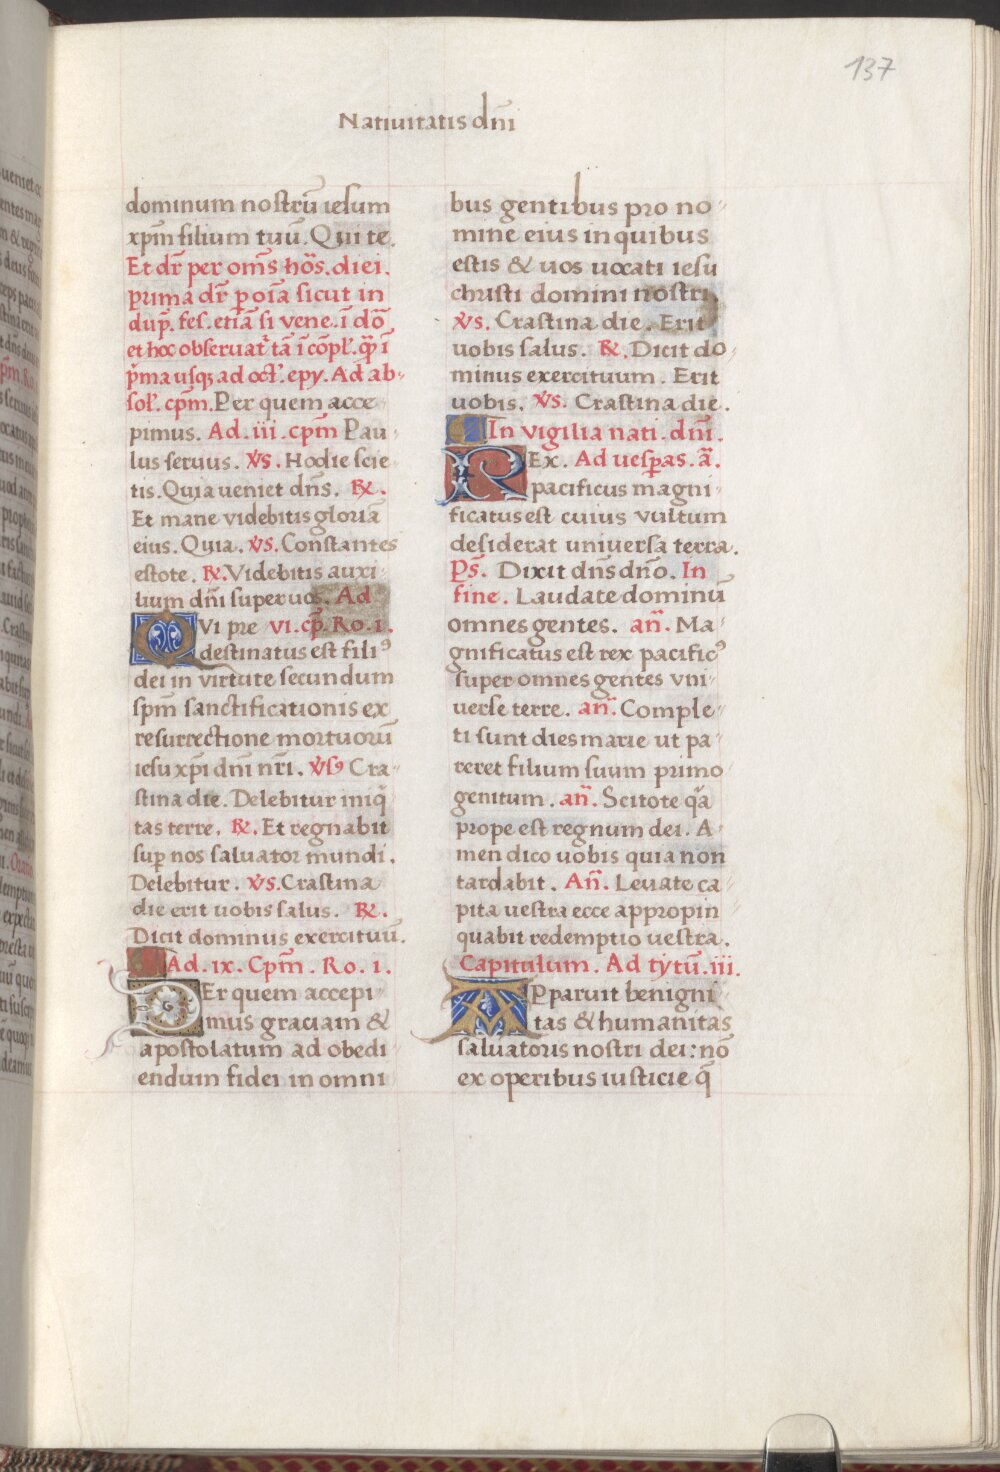 137
Natiuitatis dn̄i
dominum nostrū iesum
xp̄m filium tuū. Qui te.
Et dr̄ per om̄s hōs. diei.
prima dr̄ p oīa sicut in
dup̄. fes. etiā si vene. ī dō
et hoc obseruat᷑ tā ī cōpl̄. q̄ ī
p̄ma usq ad oct̄. epy. Ad ab-
sol̄. cp̄m. Per quem acce
pimus. Ad. iii. cpm̄ Pau
lus seruus. ℣s. Hodie scie
tis. Quia ueniet dn̄s. ℞.
Et mane videbitis gloriā
eius. Quia. ℣s. Constantes
estote. ℞. Videbitis auxi
lium dn̄i super uos. Ad
QVi pre vi. cp̄. Ro. i.
destinatus est filiꝰ
dei in virtute secundum
sp̄m sanctificationis ex
resurrectione mortuorū
iesu xp̄i dn̄i nr̄i. ℣sꝰ Cra
stina die. Delebitur iniq̄
tas terre. ℞. Et regnabit
sup̄ nos saluator mundi.
Delebitur. ℣s. Crastina
die erit uobis salus. ℞.
Dicit dominus exercituū.
Ad. ix. Cpm̄. Ro. i.
PEr quem accepi
mus graciam &
apostolatum ad obedi
endum fidei in omni
bus gentibus pro no
mine eius in quibus
estis & uos uocati iesu
christi domini nostri
℣s. Crastina die. Erit
uobis salus. ℞. Dicit do
minus exercituum. Erit
uobis. ℣s. Crastina die.
In vigilia nati. dn̄i.
REx. Ad uesp̄as. ā.
pacificus magni
ficatus est cuius vultum
desiderat uniuersa terra.
Ps̄. Dixit dn̄s dn̄o. In
fine. Laudate dominū
omnes gentes. an̄. Ma
gnificatus est rex pacificꝰ
super omnes gentes vni
uerse terre. an̄. Comple
ti sunt dies marie ut pa
reret filium suum primo
genitum. an̄. Scitote qa
prope est regnum dei. A
men dico uobis quia non
tardabit. An̄. Leuate ca
pita uestra ecce appropin
quabit redemptio uestra.
Capitulum. Ad tytū. iii.
APparuit benigni
tas & humanitas
saluatoris nostri dei: nō
ex operibus iusticie q̄